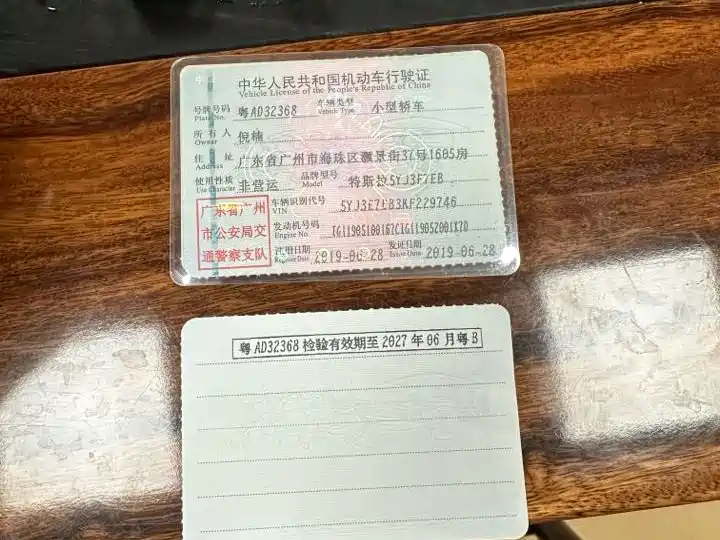 中华人民共和国机动车行驶证
Vehicle License of the People's Republic of China
号牌号码 粤AD32368 车辆类型 小型轿车
Plate No. Vehicle Type
所有人 倪楠
Owner
住址 广东省广州市海珠区灏景街37号1605房
Address
使用性质 非营运 品牌型号 特斯拉5YJ3E7EB
Use Character Model
广东省广州 车辆识别代号 5YJ3E7EB3KF229746
VIN
市公安局交 发动机号码 TG11905100167CTG119052001X7D
Engine No.
通警察支队 注册日期 2019-06-28 发证日期 2019-06-28
Register Date Issue Date
粤AD32368检验有效期至2027年06月粤B